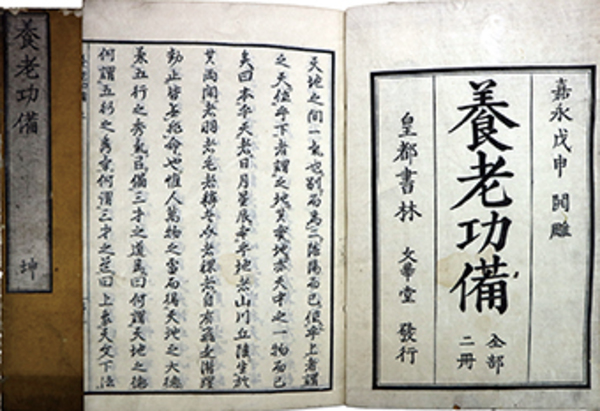 嘉永戊申 開雕
養老功備 全部二冊
皇都書林 文華堂 發行
天地之間一氣也別而爲二陰陽而已乎上者謂
之天位乎下者謂之地其地天中之一物而已
矣曰本乎天者日月星辰乎地者山川丘陵生於
其兩間者羽者毛者鱗者介者裸者自有
動止皆無非命也惟人萬物之靈而得天地之大德
兼五行之秀氣且備三才之道焉曰何謂天地之德
何謂五行之秀氣何謂三才之道曰上參天文下法
養老功備 坤